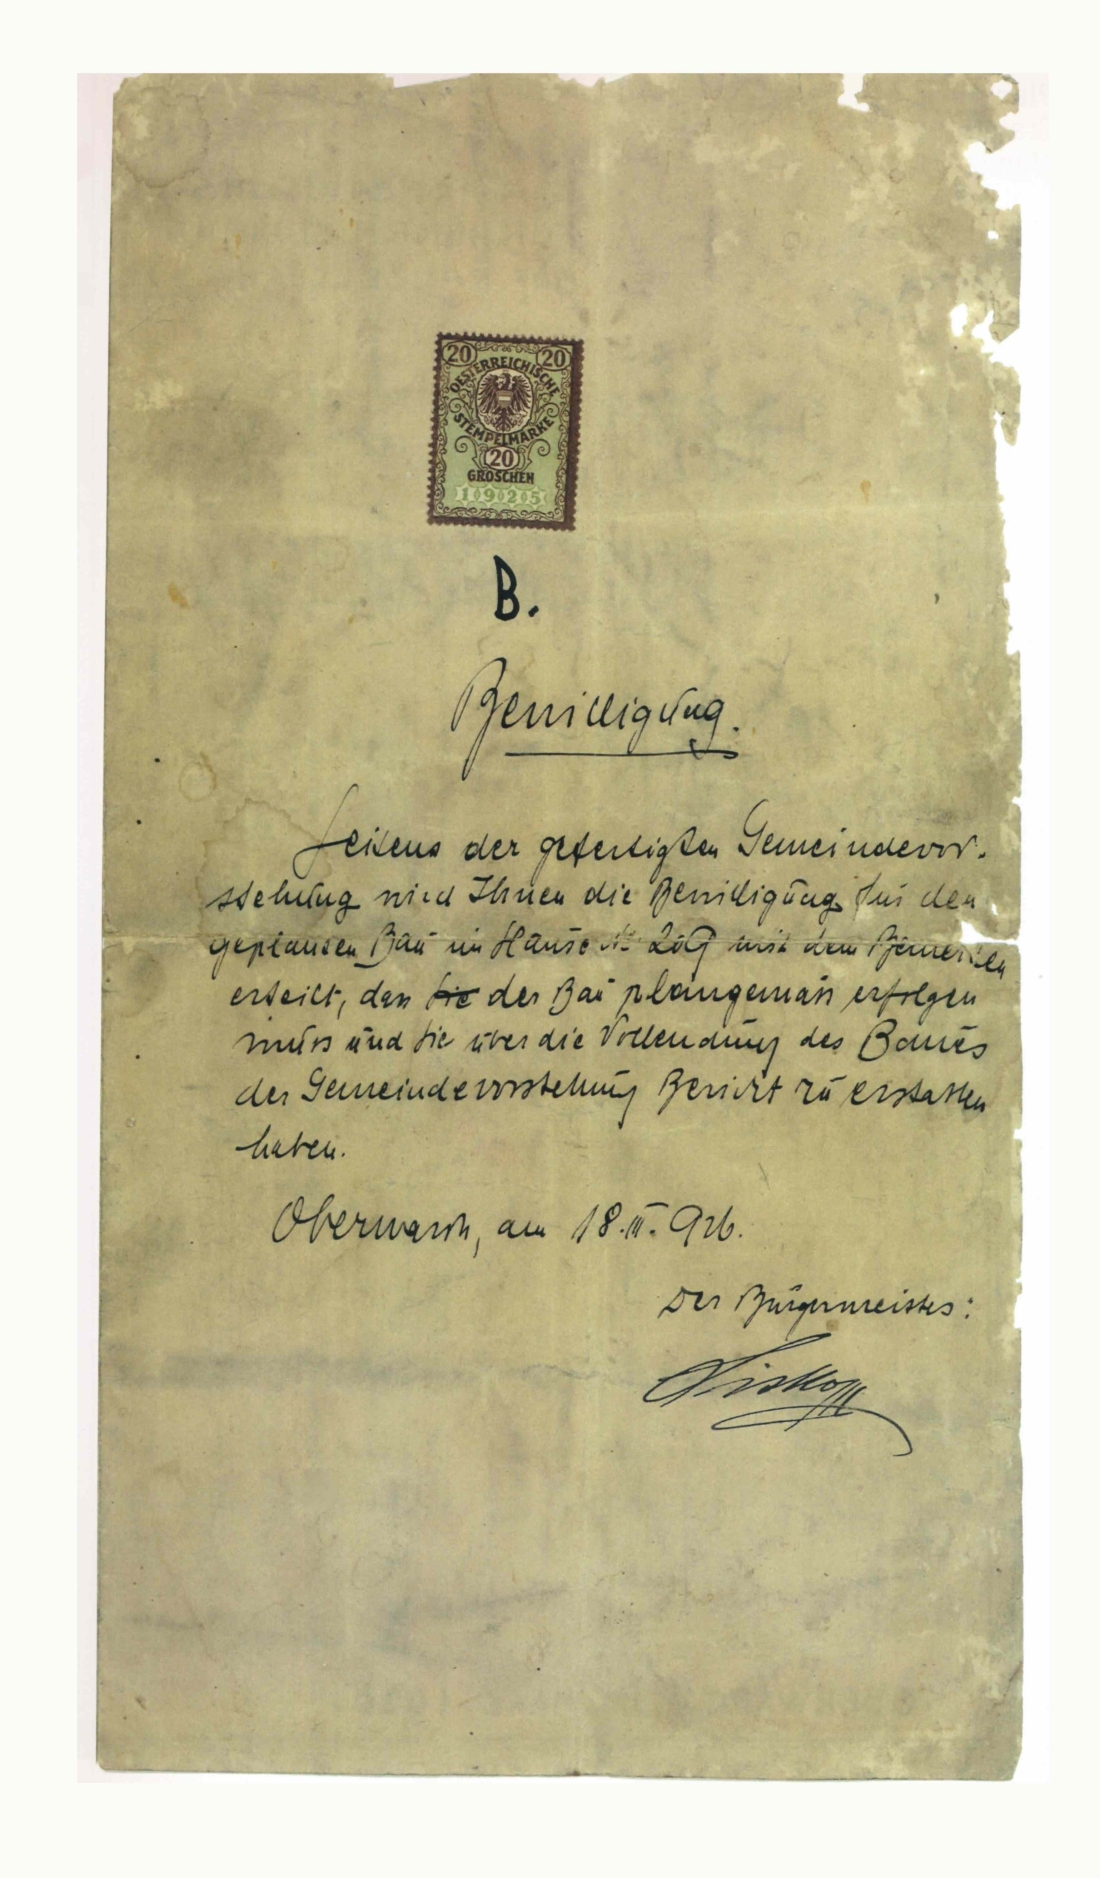 20 20
OESTERREICHISCHE
STEMPELMARKE
20
GROSCHEN
1925
B.
Bewilligung.
Seitens der gefertigten Gemeindevor-
stehung wird Ihnen die Bewilligung für den
geplanten Bau im Hause № mit dem Bemerken
erteilt, dass Sie der Bau plangemäss erfolgen
muss und Sie über die Vollendung des Baues
der Gemeindevorstehung Bericht zu erstatten
haben.
Oberwarth, am 18.III.926.
Der Bürgermeister: